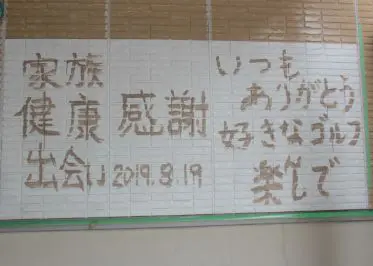 家族
健康
出会い
感謝
2019.8.19
いつも
ありがとう
好きなゴルフ
楽しんで